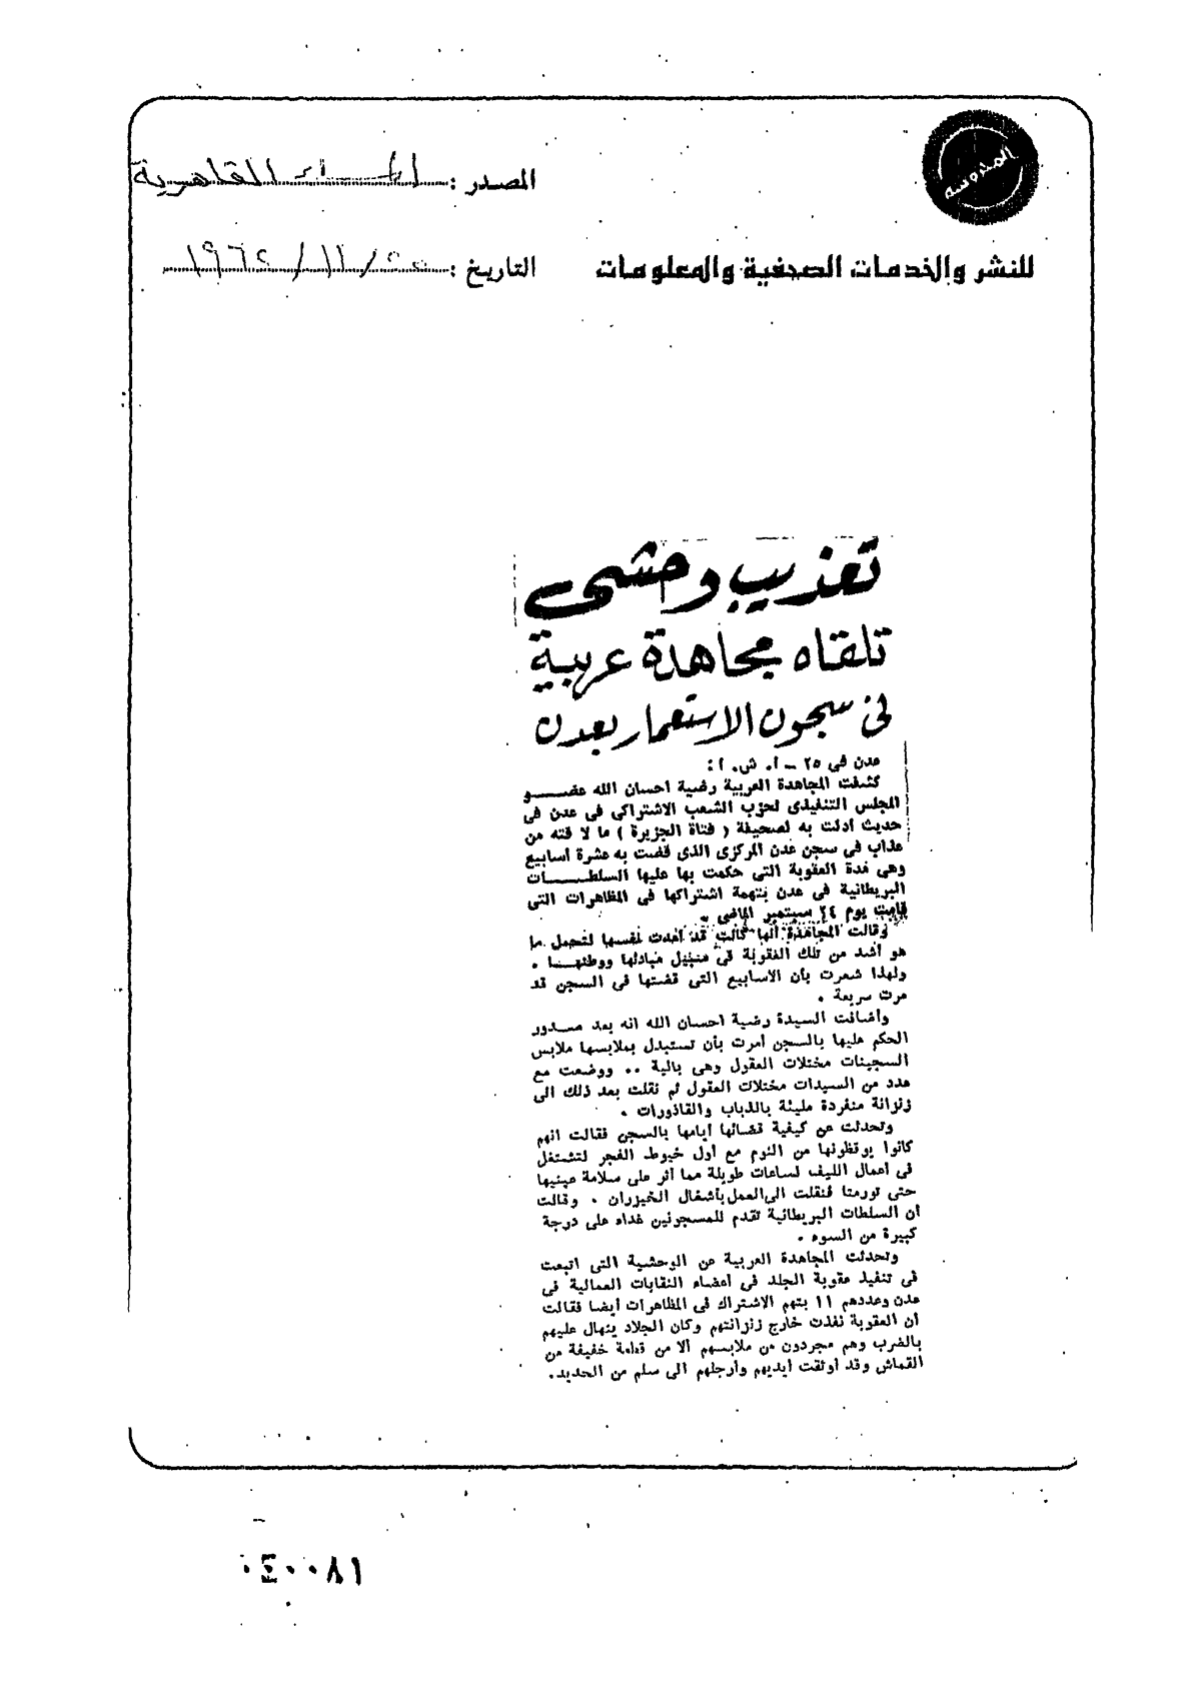 المحروسة
للنشر والخدمات الصحفية والمعلومات
المصدر : المساء القاهرية
التاريخ : ٢٥ / ١١ / ١٩٦٢
تعذيب وحشى
تلقاه مجاهدة عربية
فى سجون الاستعمار بعدن
عدن فى ٢٥ - أ. ش. أ :
كشفت المجاهدة العربية رضية احسان الله عضو
المجلس التنفيذى لحزب الشعب الاشتراكى فى عدن فى
حديث أدلت به لصحيفة ( فتاة الجزيرة ) ما لاقته من
عذاب فى سجن عدن المركزى الذى قضت به عشرة أسابيع
وهى مدة العقوبة التى حكمت بها عليها السلطات
البريطانية فى عدن بتهمة اشتراكها فى المظاهرات التى
قامت يوم ٢٤ سبتمبر الماضى .
وقالت المجاهدة أنها كانت قد أعدت نفسها لتحمل ما
هو أشد من تلك العقوبة فى سبيل مبادئها ووطنها .
ولهذا شعرت بأن الاسابيع التى قضتها فى السجن قد
مرت سريعة .
وأضافت السيدة رضية احسان الله انه بعد صدور
الحكم عليها بالسجن أمرت بأن تستبدل بملابسها ملابس
السجينات مختلات العقول وهى بالية .. ووضعت مع
عدد من السيدات مختلات العقول ثم نقلت بعد ذلك الى
زنزانة منفردة مليئة بالذباب والقاذورات .
وتحدثت عن كيفية قضائها أيامها بالسجن فقالت انهم
كانوا يوقظونها من النوم مع أول خيوط الفجر لتشتغل
فى أعمال الليف لساعات طويلة مما أثر على سلامة عينيها
حتى تورمتا فنقلت الى العمل بأشغال الخيزران . وقالت
أن السلطات البريطانية تقدم للمسجونين غداء على درجة
كبيرة من السوء .
وتحدثت المجاهدة العربية عن الوحشية التى اتبعت
فى تنفيذ عقوبة الجلد فى أعضاء النقابات العمالية فى
عدن وعددهم ١١ بتهم الاشتراك فى المظاهرات أيضا فقالت
أن العقوبة نفذت خارج زنزانتهم وكان الجلاد ينهال عليهم
بالضرب وهم مجردون من ملابسهم ألا من قطعة خفيفة من
القماش وقد أوثقت أيديهم وأرجلهم الى سلم من الحديد.
٠٤٠٠٨١